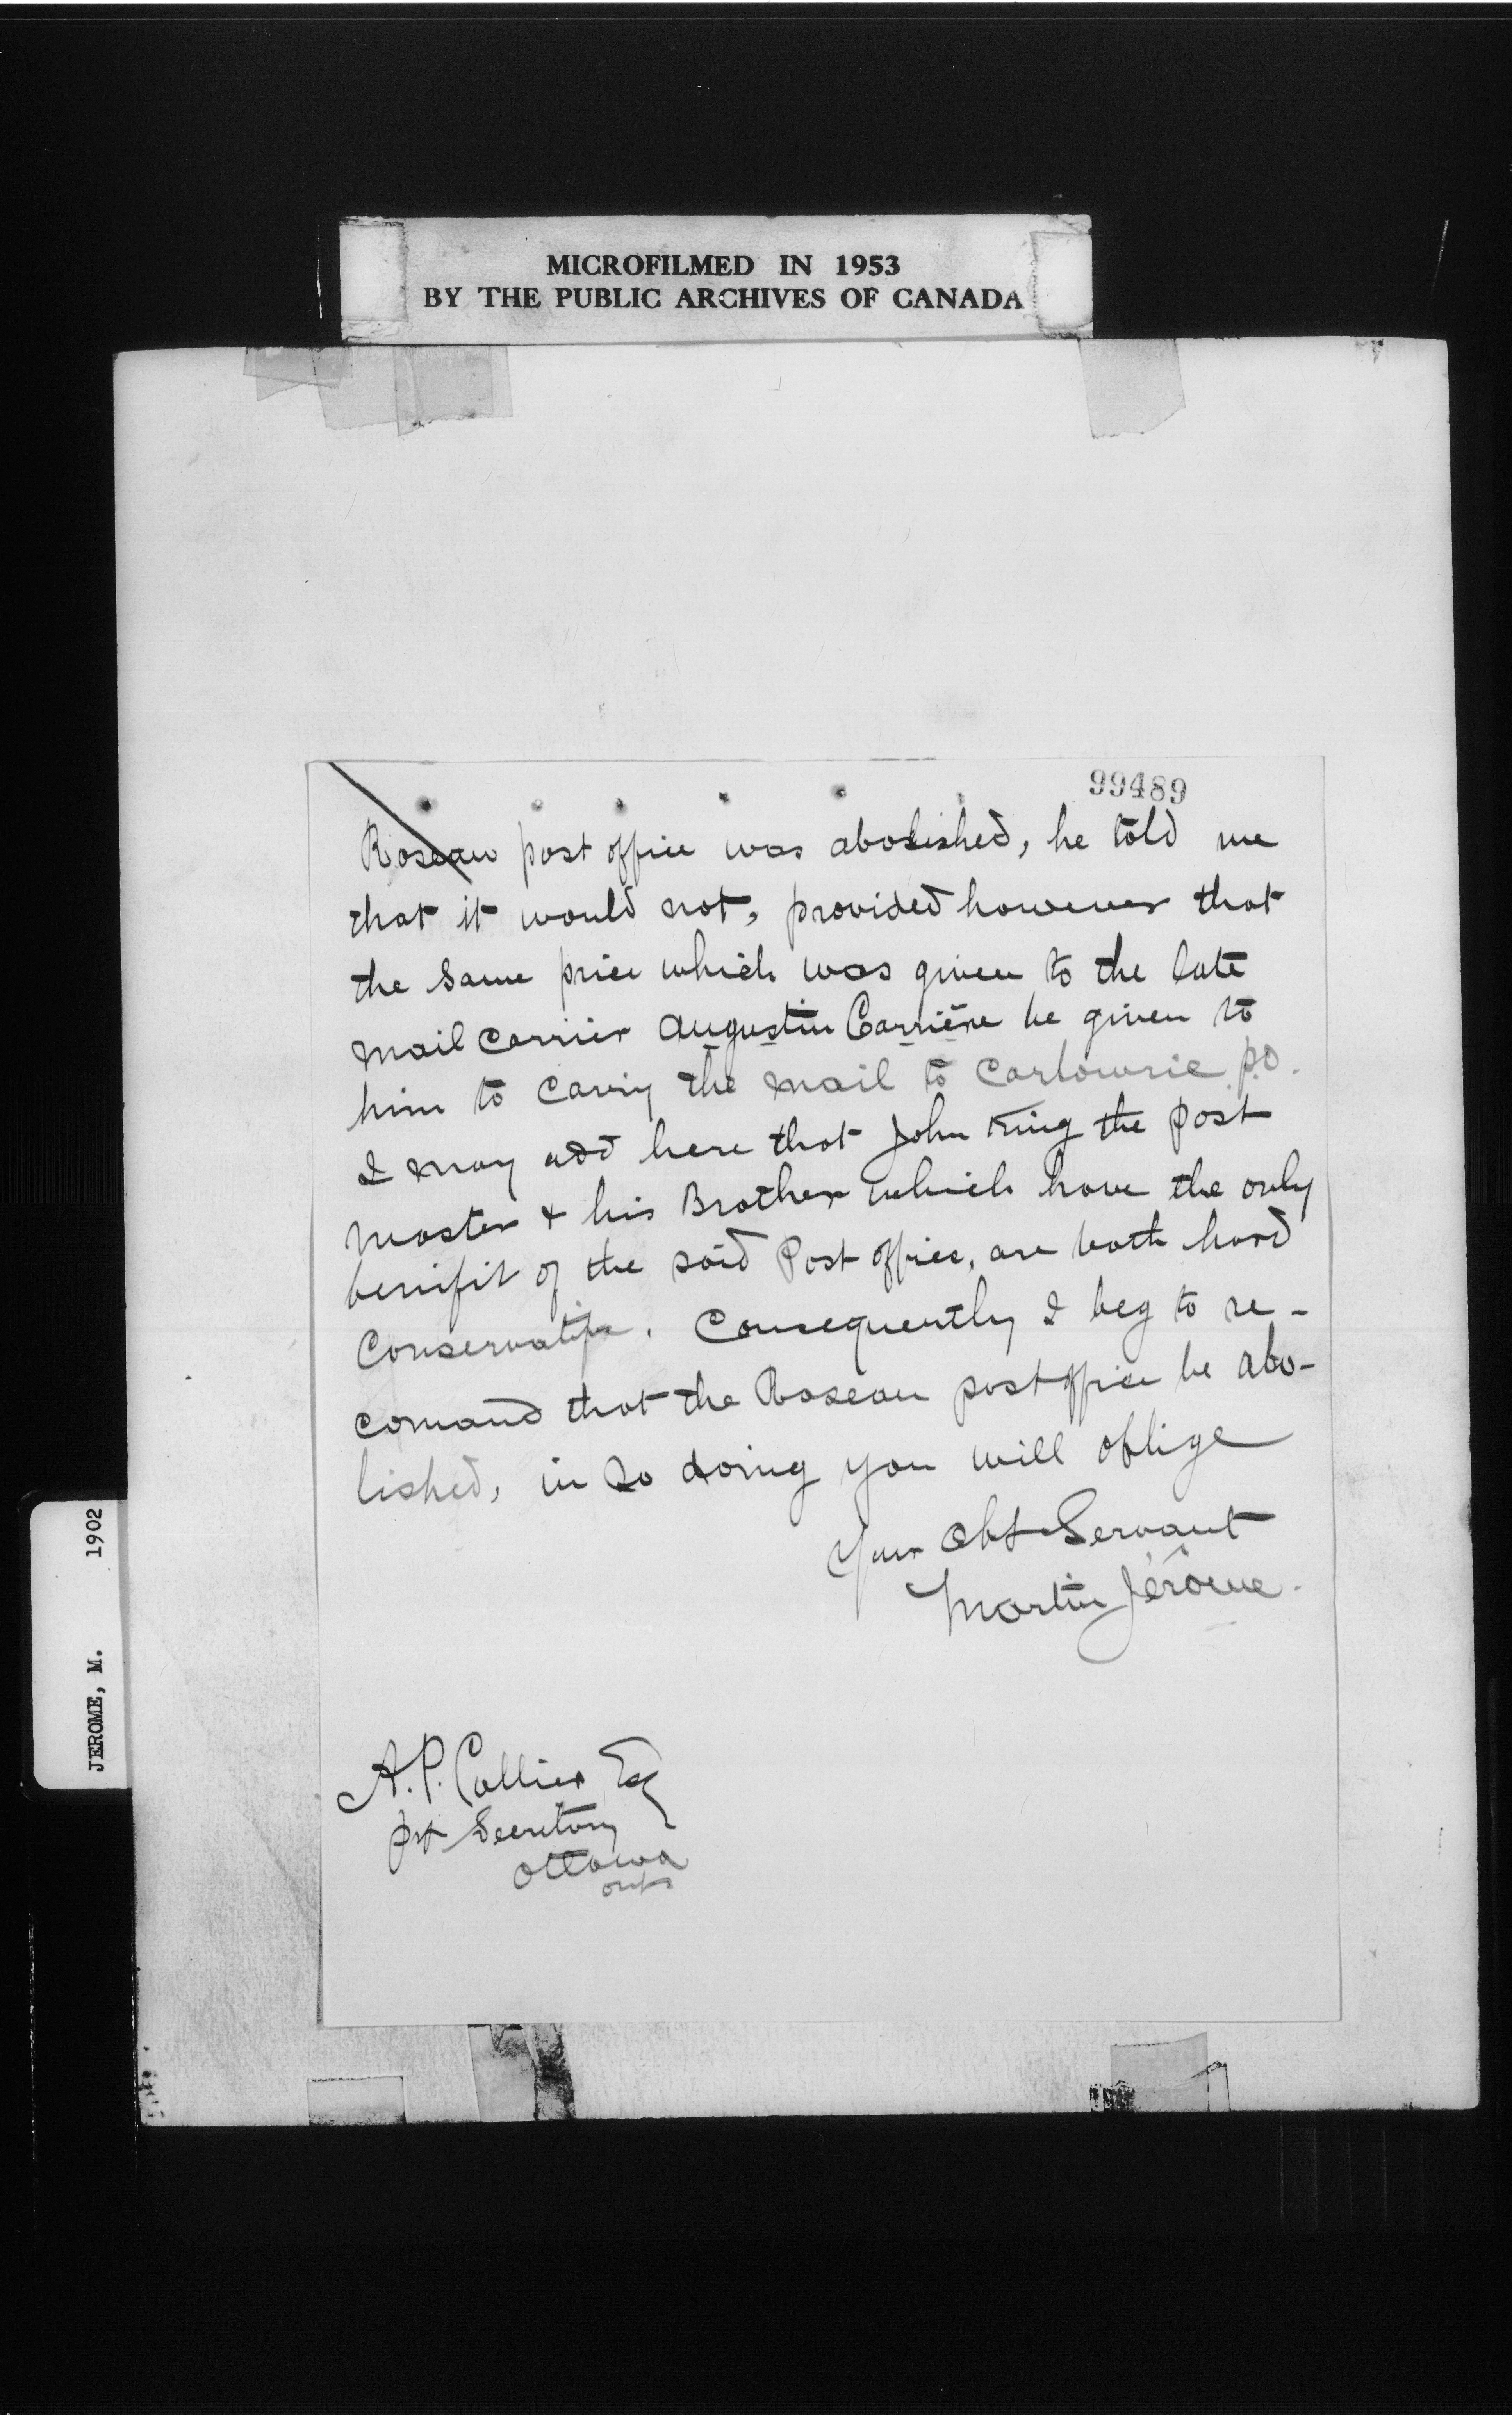 MICROFILMED IN 1953
BY THE PUBLIC ARCHIVES OF CANADA
99489
Roseau post office was abolished, he told me
that it would not, provided however that
the same price which was given to the late
mail carrier Augustin Carrière be given to
him to carry the mail to Carlowrie p.o.
I may add here that John King the post
master & his Brother which have the only
benifit of the said Post office, are both hard
Conservative. Consequently I beg to re-
comand that the Roseau post office be abo-
lished, in so doing you will oblige
Your Obt Servant
Martin Jérôme.
A. P. Collier Esq
pvt Secretary
Ottawa
Ont
JEROME, M. 1902